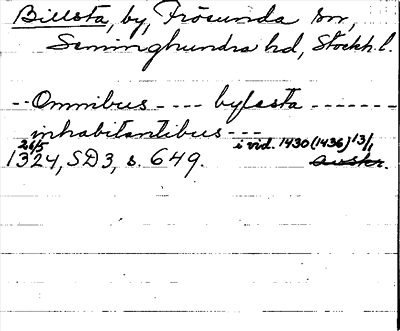 Billsta, by, Frösunda sn,
Seminghundra hd, Stockh. l.
-- Omnibus ---- byłesta -------
inhabitantibus ---
26/5 i vid. 1430 (1436) 13/1
1324, SD3, s. 649. avskr.